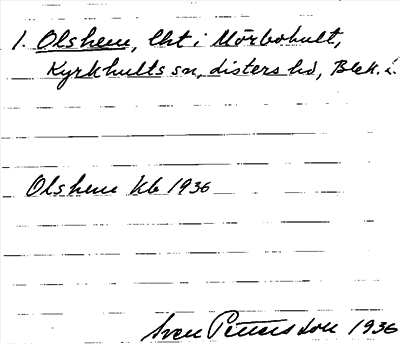 1. Olshem, lht i Mörbohult,
Kyrkhults sn, Listers hd, Blek. l.
Olshem Kb 1936
Sven Petersson 1936